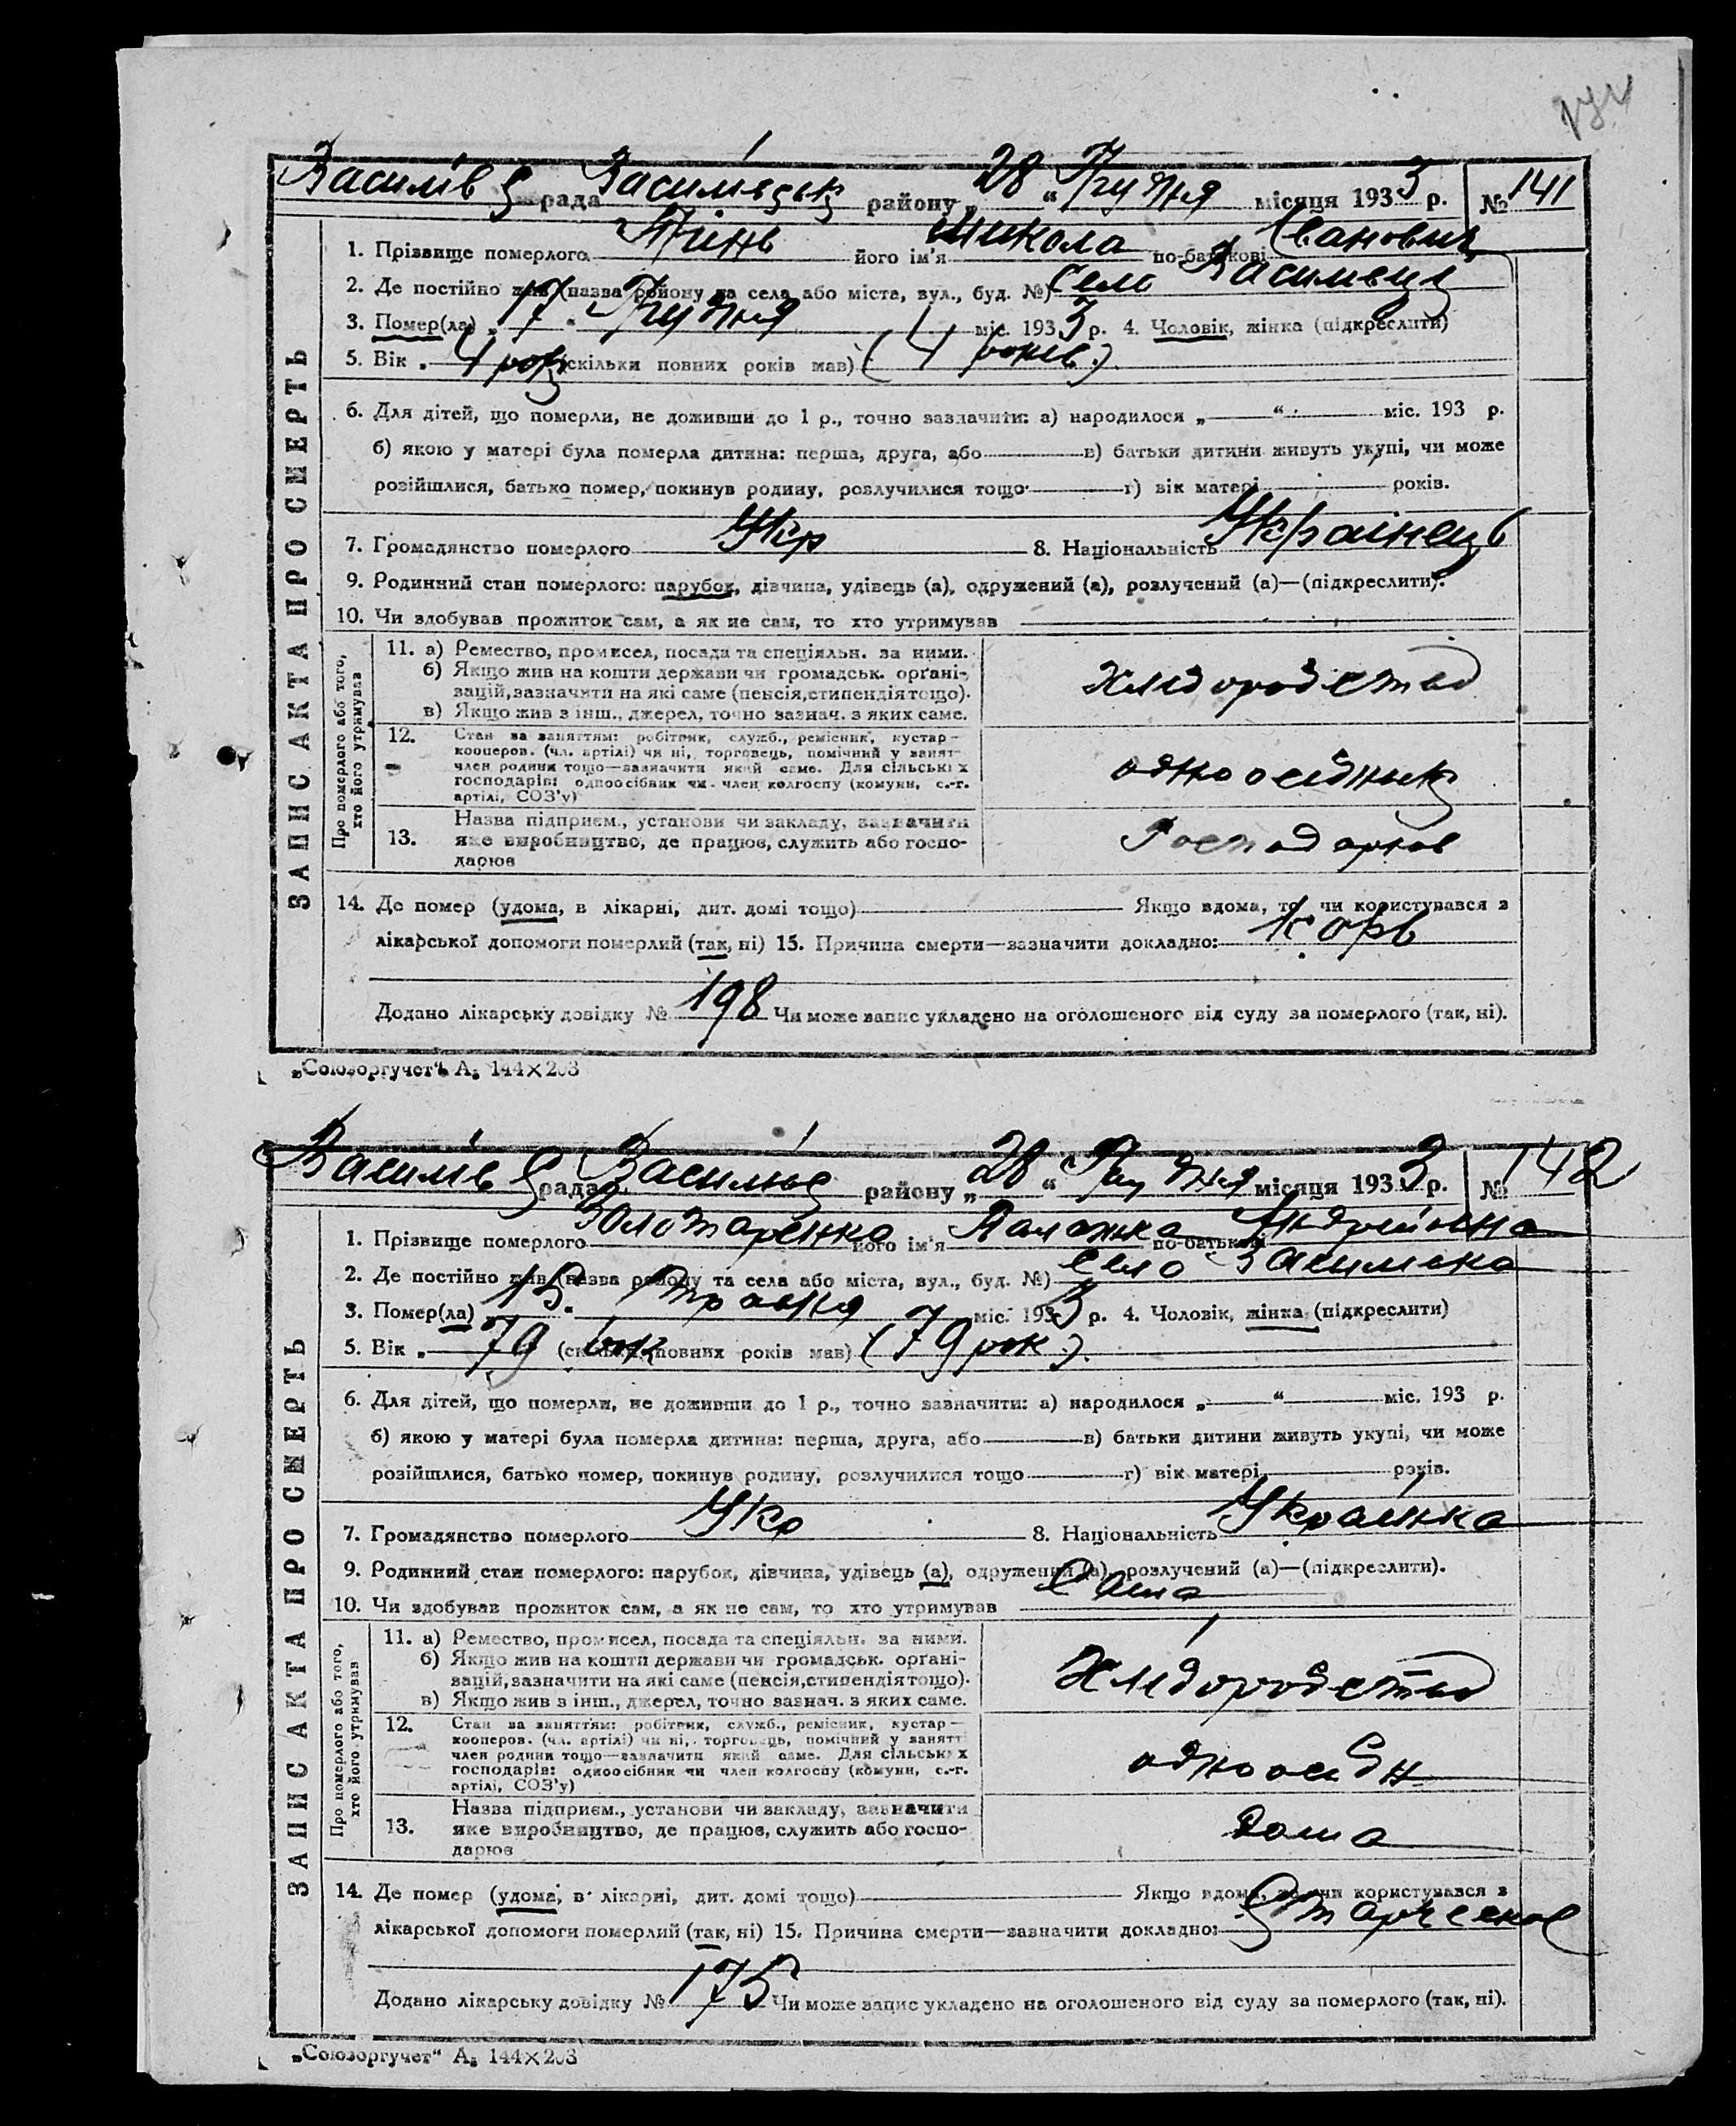 Василівс рада Василівськ району „28“ Грудня місяця 1933 р. № 141
ЗАПИС АКТА ПРО СМЕРТЬ
1. Прізвище померлого його ім'я Микола по-батькові Іванович
2. Де постійно жив (назва району та села або міста, вул., буд. №) Село
3. Помер(ла) „17“ Грудня міс. 1933 р. 4. Чоловік, жінка (підкреслити)
5. Вік „ 4 рок (скільки повних років мав) (4 років).
6. Для дітей, що померли, не доживши до 1 р., точно зазначити: а) народилося „ “ міс. 193 р.
б) якою у матері була померла дитина: перша, друга, або в) батьки дитини живуть укупі, чи може
розійшлися, батько помер, покинув родину, розлучилися тощо г) вік матері років.
7. Громадянство померлого Укр 8. Національність Українець
9. Родинний стан померлого: парубок, дівчина, удівець (а), одружений (а), розлучений (а)—(підкреслити).
10. Чи здобував прожиток сам, а як не сам, то хто утримував
Про померлого або того, хто його утримував
11. а) Ремество, промисел, посада та спеціяльн. за ними.
б) Якщо жив на кошти держави чи громадськ. орґані-
зацій, зазначити на які саме (пенсія, стипендія тощо).
в) Якщо жив з інш., джерел, точно зазнач. з яких саме.
ХлібороБство
12. Стан за заняттям: робітник, служб., ремісник, кустар—
кооперов. (чл. артілі) чи ні, торговець, помічний у занят-
член родини тощо—зазначити який саме. Для сільських
господарів: одноосібник чи член колгоспу (комуни, с.-г.
артілі, СОЗ'у)
одноосібник
13. Назва підприєм., установи чи закладу, зазначити
яке виробництво, де працює, служить або госпо-
дарює
Господарює
14. Де помер (удома, в лікарні, дит. домі тощо) Якщо вдома, то чи користувався з
лікарської допомоги померлий (так, ні) 15. Причина смерти—зазначити докладно: Корь
Додано лікарську довідку № 198 Чи може запис укладено на оголошеного від суду за померлого (так, ні).
„Союзоргучет“ А₅ 144×203
Василівс рада району „28“ Грудня місяця 1933 р. № 142
ЗАПИС АКТА ПРО СМЕРТЬ
1. Прізвище померлого Золотаренко його ім'я Палажка по-батькові Андрийовна
2. Де постійно жив (назва району та села або міста, вул., буд. №) Село
3. Помер(ла) „15“ Травня міс. 1933 р. 4. Чоловік, жінка (підкреслити)
5. Вік „ 79 рок (скільки повних років мав) (79 рок).
6. Для дітей, що померли, не доживши до 1 р., точно зазначити: а) народилося „ “ міс. 193 р.
б) якою у матері була померла дитина: перша, друга, або в) батьки дитини живуть укупі, чи може
розійшлися, батько помер, покинув родину, розлучилися тощо г) вік матері років.
7. Громадянство померлого Укр 8. Національність Українка
9. Родинний стан померлого: парубок, дівчина, удівець (а), одружений (а), розлучений (а)—(підкреслити).
10. Чи здобував прожиток сам, а як не сам, то хто утримував Сама
Про померлого або того, хто його утримував
11. а) Ремество, промисел, посада та спеціяльн. за ними.
б) Якщо жив на кошти держави чи громадськ. орґані-
зацій, зазначити на які саме (пенсія, стипендія тощо).
в) Якщо жив з інш., джерел, точно зазнач. з яких саме.
Хліборобство
12. Стан за заняттям: робітник, служб., ремісник, кустар—
кооперов. (чл. артілі) чи ні, торговець, помічний у занятті
член родини тощо—зазначити який саме. Для сільських
господарів: одноосібник чи член колгоспу (комуни, с.-г.
артілі, СОЗ'у)
одноосібн
13. Назва підприєм., установи чи закладу, зазначити
яке виробництво, де працює, служить або госпо-
дарює
дома
14. Де помер (удома, в лікарні, дит. домі тощо) Якщо вдома, то чи користувався з
лікарської допомоги померлий (так, ні) 15. Причина смерти—зазначити докладно:
Додано лікарську довідку № 175 Чи може запис укладено на оголошеного від суду за померлого (так, ні).
„Союзоргучет“ А₅ 144×203